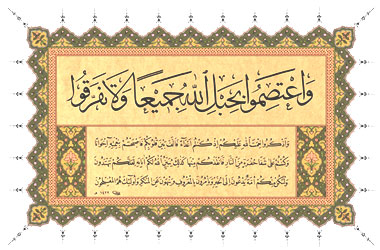 واعتصموا بحبل الله جميعا ولا تفرقوا
واذكروا نعمة الله عليكم إذ كنتم أعداء فألف بين قلوبكم فأصبحتم بنعمته إخوانا
وكنتم على شفا حفرة من النار فأنقذكم منها كذلك يبين الله لكم آياته لعلكم تهتدون
ولتكن منكم أمة يدعون إلى الخير ويأمرون بالمعروف وينهون عن المنكر وأولئك هم المفلحون